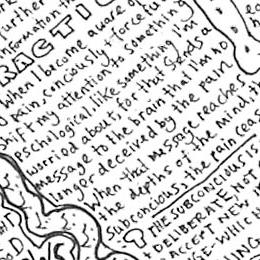 further
information th
RACTIC
When I become aware o
pain, conciously + forcefu
shift my attention to something
echilogical, like something I'm
worried about, for that sends a
message to the brain that I'm no
longer deceived by the pain
When that message reache
the depths of the mind, th
subconscious, the pain ceas
THE SUBCONCIOUS IS
DELIBERATE, NOT
ACCEPT NEW
GE- WHICH
LING